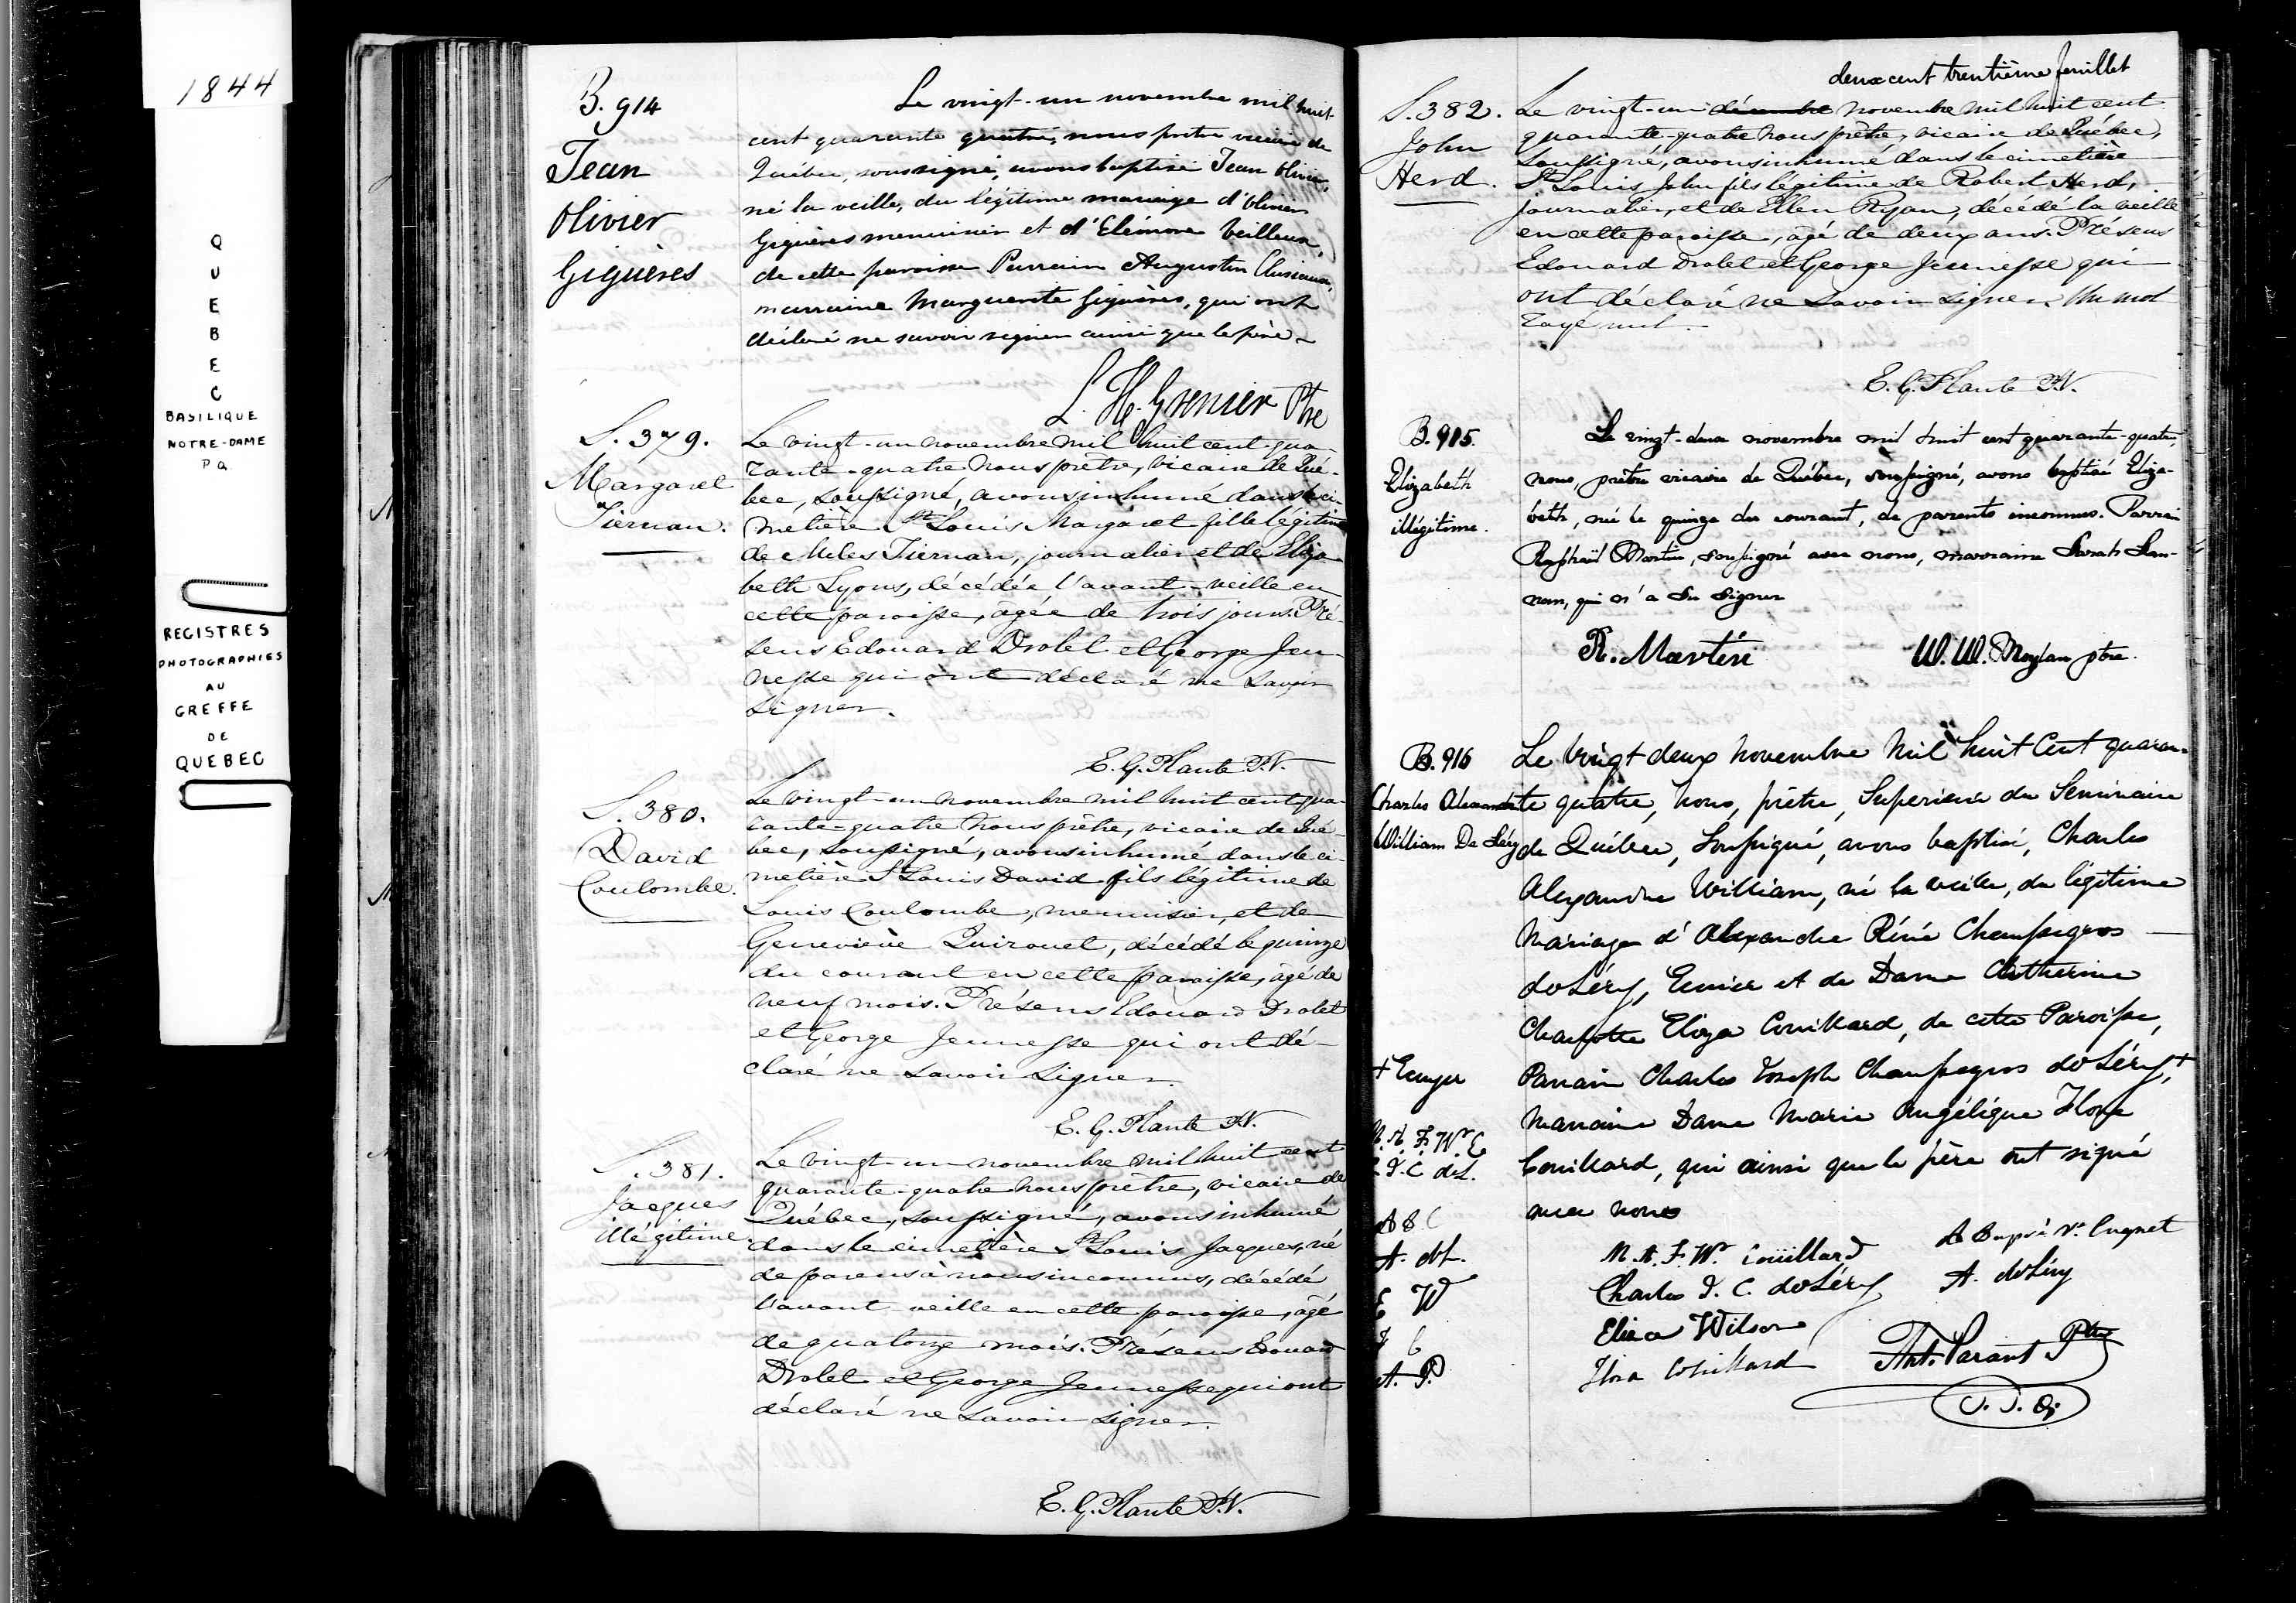 1844
QUEBEC
BASILIQUE
NOTRE-DAME
PQ
REGISTRES
PHOTOGRAPHIES
AU
GREFFE
DE
QUEBEC
B. 914
Jean
Olivier
Giguères
Le vingt-un novembre mil huit
cent quarante quatre, nous prêtre vicaire de
Québec, soussigné, avons baptisé Jean Olivier,
né la veille, du légitime mariage d'Olivier
Giguères menuisier et d'Eléonore Veilleux,
de cette paroisse Parrain Augustin
marraine Marguerite Giguères, qui ont
déclaré ne savoir signer ainsi que le père
L. H. Grenier Ptre
S. 379.
Margaret
Tiernan.
Le vingt-un novembre mil huit cent qua-
rante-quatre nous prêtre, vicaire de Qué-
bec, soussigné, avons inhumé dans le ci-
metière St Louis Margaret fille légitime
de Miles Tiernan, journalier et de Eliza-
beth Lyons, décédée l'avant-veille en
cette paroisse, agée de trois jours. Pré-
sens Edouard Drolet et George Jeu-
nesse qui ont déclaré ne savoir
signer.
E. G. Plante P.V.
S. 380.
David
Coulombe.
Le vingt-un novembre mil huit cent qua-
rante-quatre nous prêtre, vicaire de Qué-
bec, soussigné, avons inhumé dans le ci-
metière St Louis David fils légitime de
Louis Coulombe, menuisier, et de
Geneviève Quirouet, décédé le quinze
du courant en cette paroisse, âgé de
neuf mois. Présens Edouard Drolet
et George Jeunesse qui ont dé-
claré ne savoir signer.
E. G. Plante P.V.
S. 381.
Jacques
illégitime.
Le vingt-un novembre mil huit cent
quarante-quatre nous prêtre, vicaire de
Québec, soussigné, avons inhumé
dans le cimetière St Louis Jacques, né
de parens à nous inconnus, décédé
l'avant-veille en cette paroisse, âgé
de quatorze mois. Présens Edouard
Drolet et George Jeunesse qui ont
déclaré ne savoir signer.
E. G. Plante P.V.
deux cent trentième feuillet
S. 382.
John
Herd.
Le vingt-un décembre novembre mil huit cent
quarante-quatre nous prêtre, vicaire de Québec,
soussigné, avons inhumé dans le cimetière
St Louis John fils légitime de Robert Herd,
journalier, et de Ellen Ryan, décédé la veille
en cette paroisse, âgé de deux ans. Présens
Edouard Drolet et George Jeunesse qui
ont déclaré ne savoir signer. Un mot
rayé nul.
E. G. Plante P.V.
B. 915.
Elizabeth
illégitime.
Le vingt-deux novembre mil huit cent quarante-quatre,
nous, prêtre vicaire de Québec, soussigné, avons baptisé Eliza-
beth, née le quinze du courant, de parents inconnus. Parrain
Raphaël Martin, soussigné avec nous, marraine Sarah Lan-
nan, qui n'a su signer
R. Martin
W. W. Moylan ptre.
B. 916
Charles Alexandre
William De Léry
Le vingt deux novembre mil huit cent quaran-
te quatre, nous, prêtre, Superieur du Seminaire
de Québec, Soussigné, avons baptisé, Charles
Alexandre William, né la veille, du légitime
Mariage d'Alexandre Réné Chaussegros
de Léry, Ecuier et de Dame Catherine
Charlotte Eliza Couillard, de cette Paroisse,
Parrain Charles Joseph Chaussegros de Léry, +
Marraine Dame Marie Angélique Flore
Couillard, qui ainsi que le père ont signé
avec nous
+ Ecuyer
M. A. F. Wr C.
C. J. C. deL.
A. deL.
E W
F C
A. P.
M. A. F. Wr Couillard
Charles J. C. de Léry
A. de Léry
Eliza Wilson
Flora Couillard
Ant. Parant Ptre
S. S. Q.